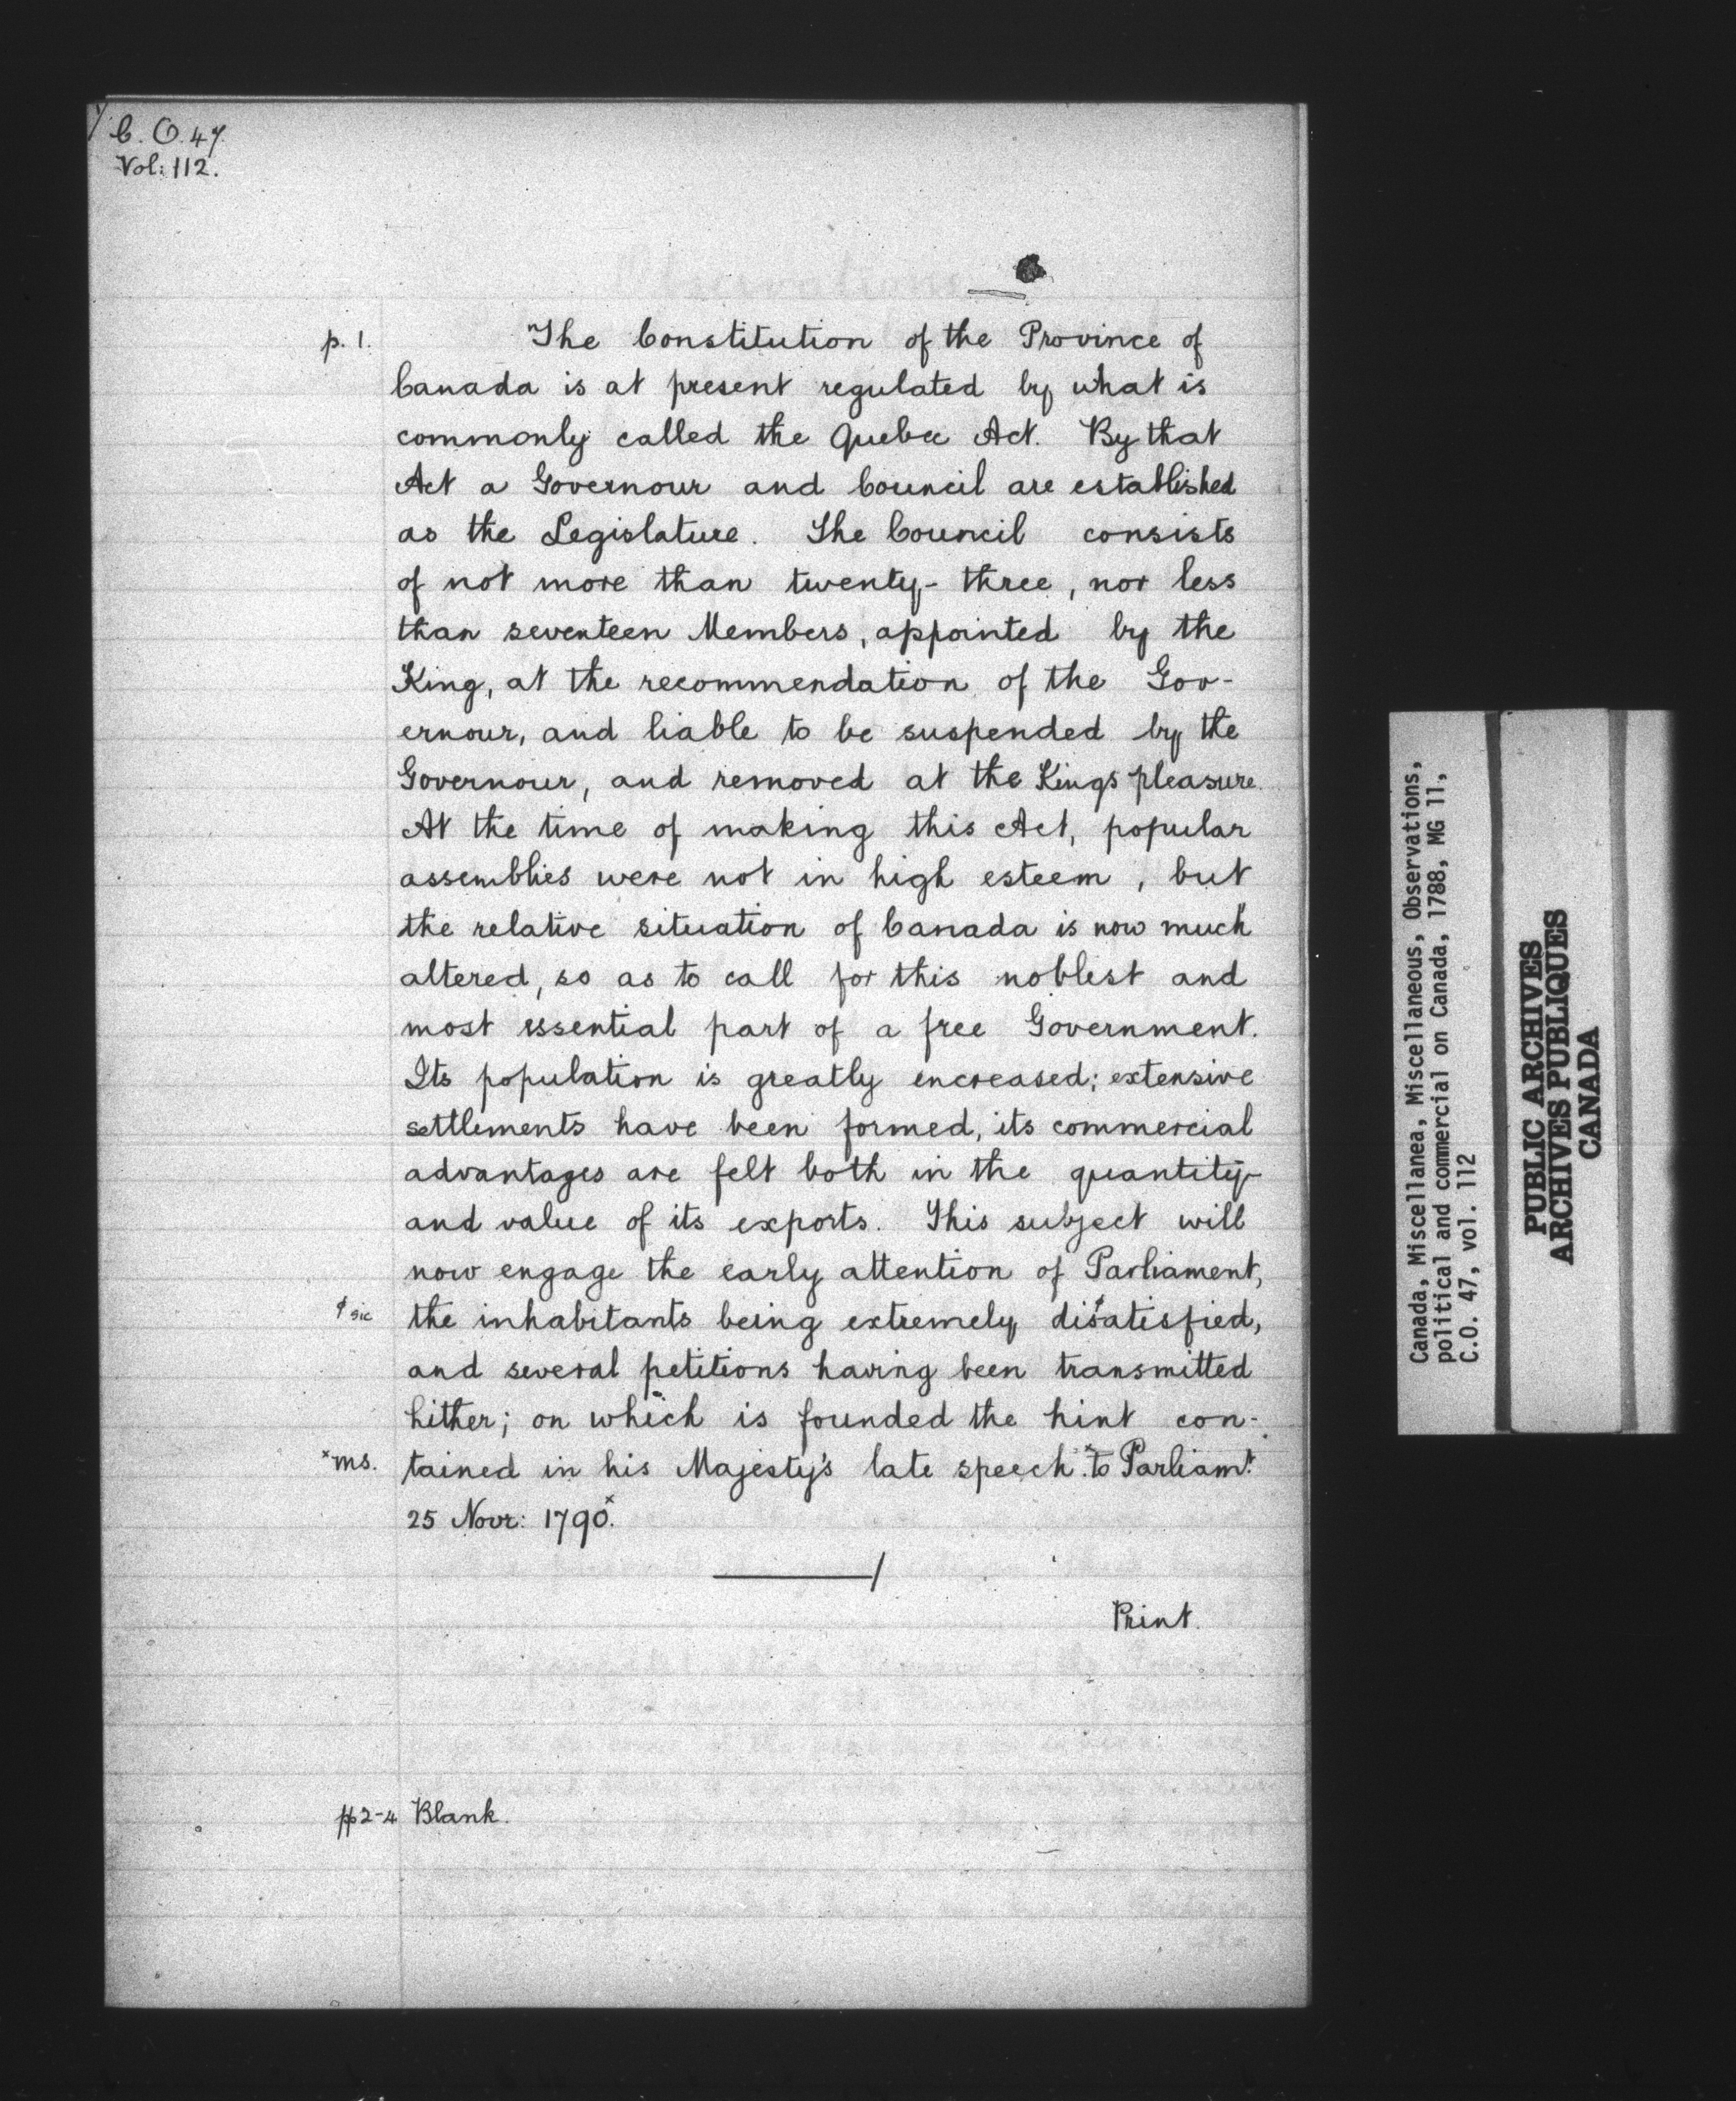 C. O. 47.
Vol: 112.
p. 1. The Constitution of the Province of
Canada is at present regulated by what is
commonly called the Quebec Act. By that
Act a Governour and Council are established
as the Legislature. The Council consists
of not more than twenty-three, nor less
than seventeen Members, appointed by the
King, at the recommendation of the Gov-
ernour, and liable to be suspended by the
Governour, and removed at the Kings pleasure.
At the time of making this Act, popular
assemblies were not in high esteem, but
the relative situation of Canada is now much
altered, so as to call for this noblest and
most essential part of a free Government.
Its population is greatly encreased; extensive
settlements have been formed, its commercial
advantages are felt both in the quantity
and value of its exports. This subject will
now engage the early attention of Parliament,
sic the inhabitants being extremely disatisfied,
and several petitions having been transmitted
hither; on which is founded the hint con-
x ms. tained in his Majesty's late speech x to Parliamt.
25 Novr: 1790 x.
Print.
pp 2-4 Blank.
Canada, Miscellanea, Miscellaneous, Observations,
political and commercial on Canada, 1788, MG 11,
C.O. 47, vol. 112
PUBLIC ARCHIVES
ARCHIVES PUBLIQUES
CANADA